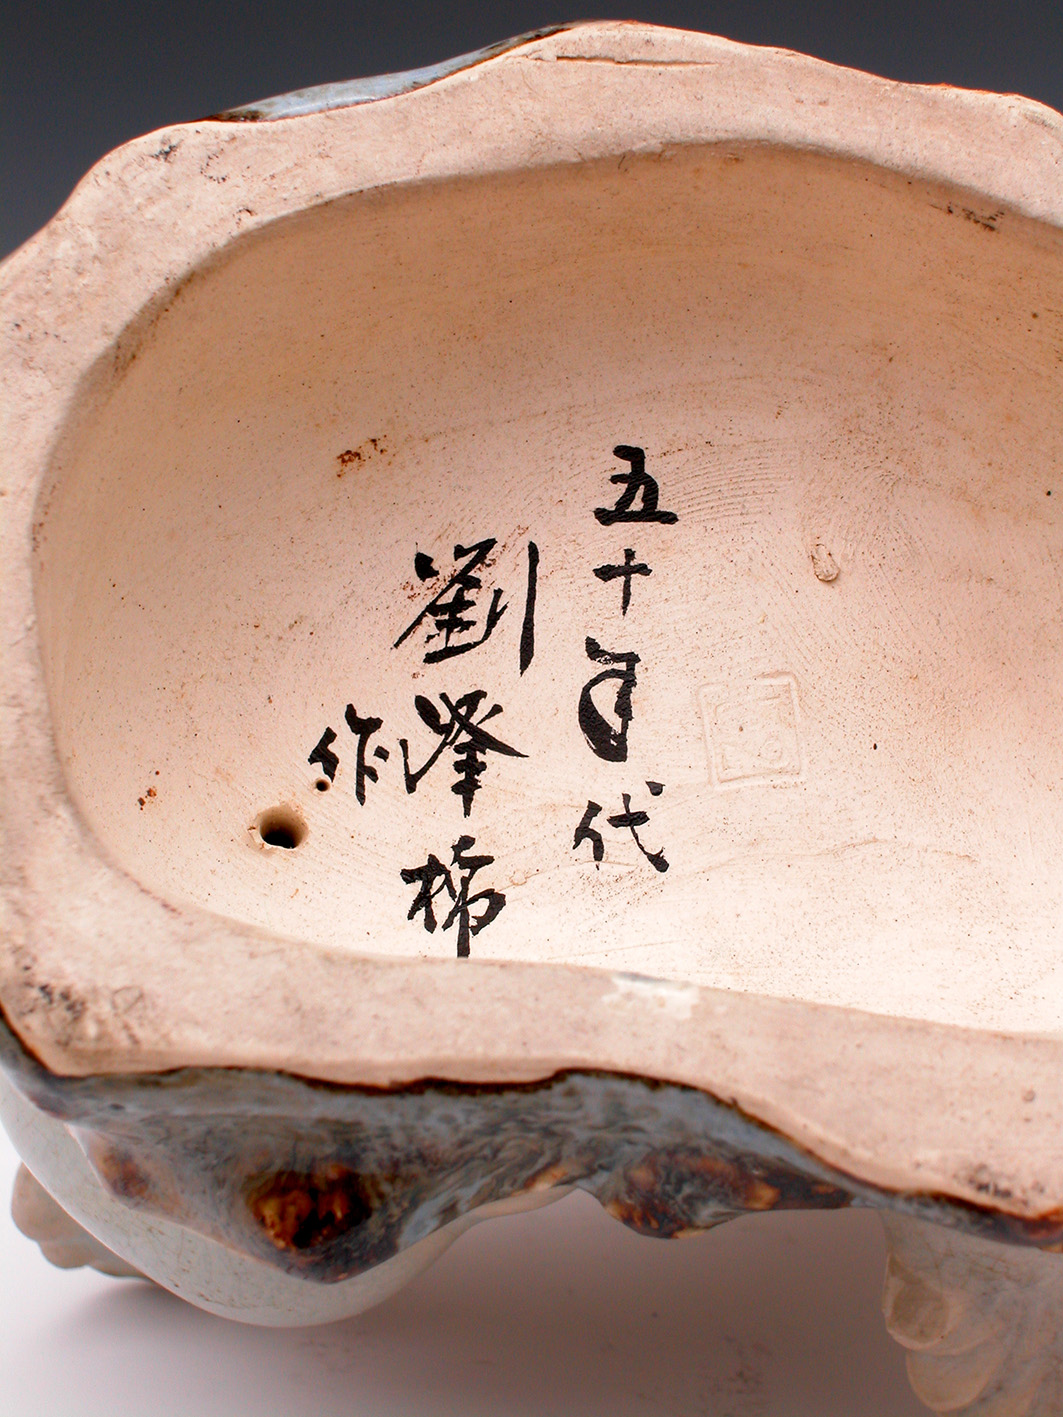 五十年代
劉澤棉
作